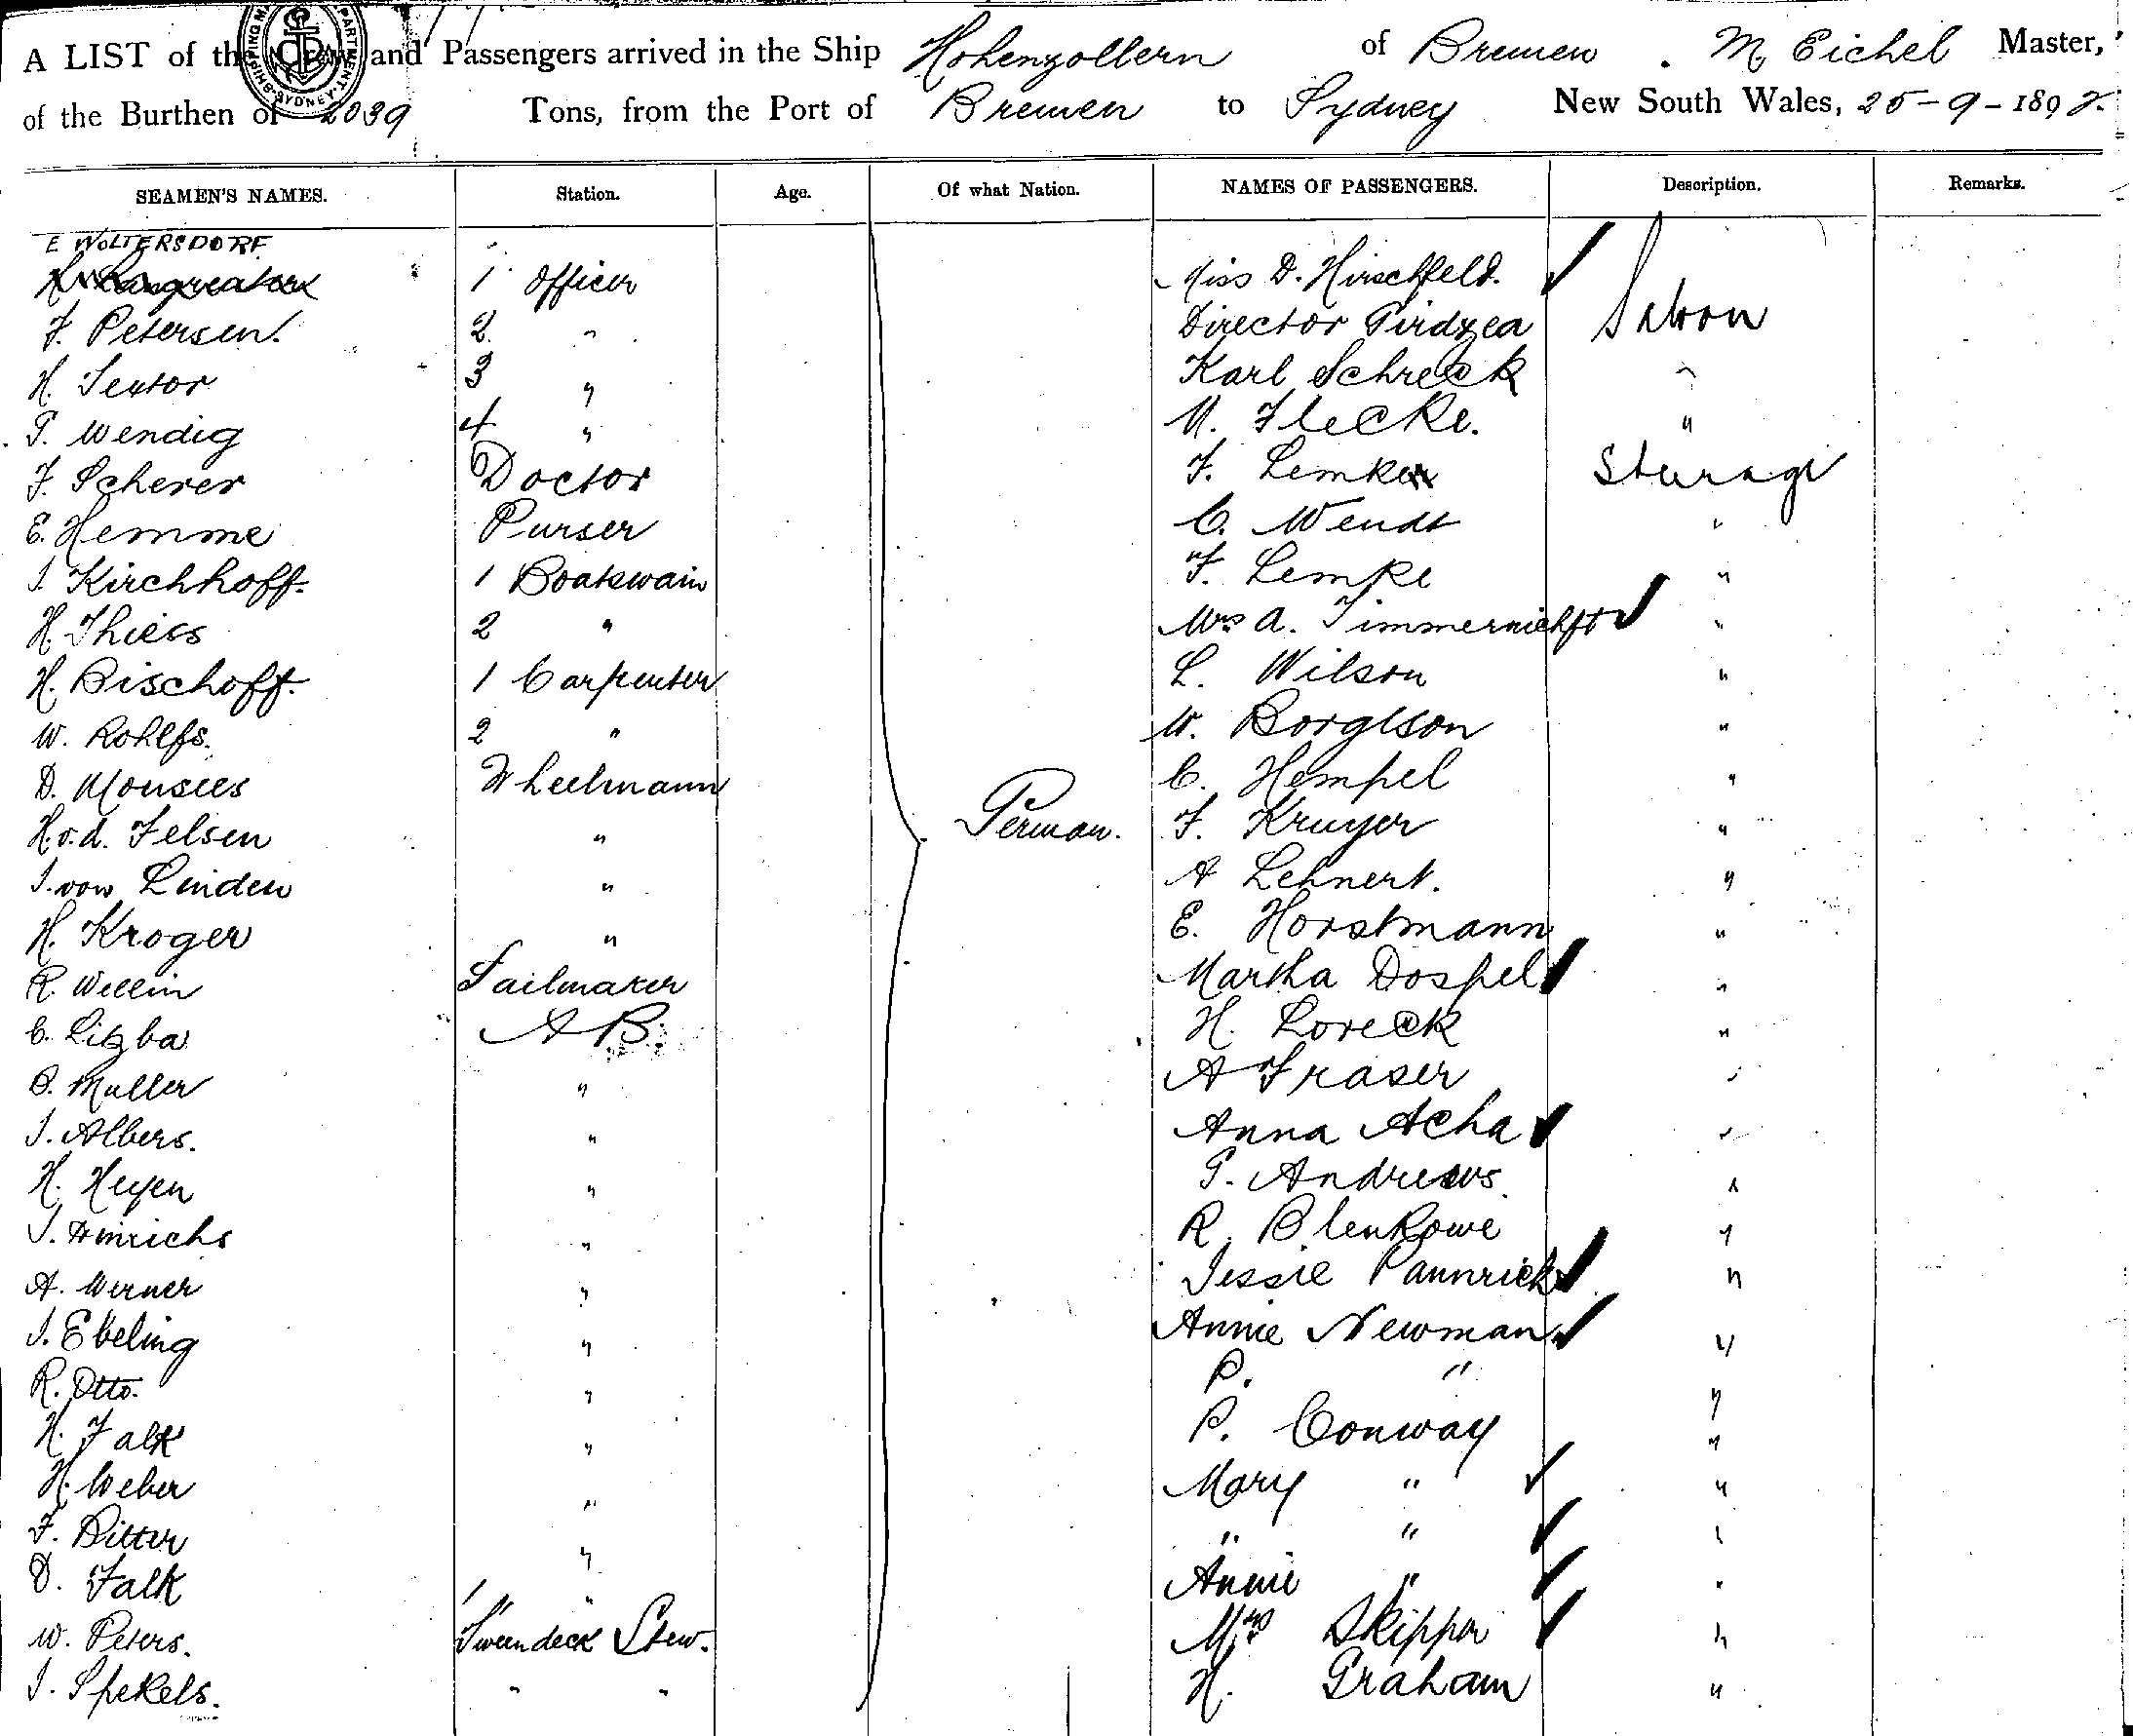 A LIST of the Crew and Passengers arrived in the Ship Hohenzollern of Bremen . M. Eichel Master,
of the Burthen of 2039 Tons, from the Port of Bremen to Sydney New South Wales, 25-9-1897.
SEAMEN'S NAMES. Station. Age. Of what Nation. NAMES OF PASSENGERS. Description. Remarks.
E WOLTERSDORF
1 Officer Miss D. Hirschfeld. Saloon
F. Petersen. 2 " Director Pirdzea
H. Sextor 3 " Karl Schreck "
P. Wendig 4 " M. Flecke. "
F. Scherer Doctor F. Lemke Sturage
E. Hemme Purser C. Wendt "
J. Kirchhoff. 1 Boatswain F. Lemke "
H. Thiess 2 " Mrs A. "
H. Bischoff. 1 Carpenter L. Wilson "
W. Rohlfs. 2 " W. Borgtson "
D. Monsees Wheelmann C. Hempel "
H. v. d. Felsen " F. Kruyer "
J. von Linden " A Lehnert. "
H. Kroger " E. Horstmann "
R. Wellin Sailmaker Martha Dospel "
C. Litzba A B. H. Loreck "
B. Muller " A Fraser "
J. Albers. " Anna Acha "
H. Heyen " P. Andrews "
J. Hinrichs " R. Blenkowe "
A. Werner " Jessie Pannrick "
J. Ebeling " Annie Newman "
R. Otto. " P. " "
H. Falk " P. Conway "
H. Weber " Mary " "
F. Ritter " " " "
D. Falk " Annie " "
W. Peters. Tweendeck Stew. Mrs Skipper "
J. Spekels. " " H. Graham "
German.